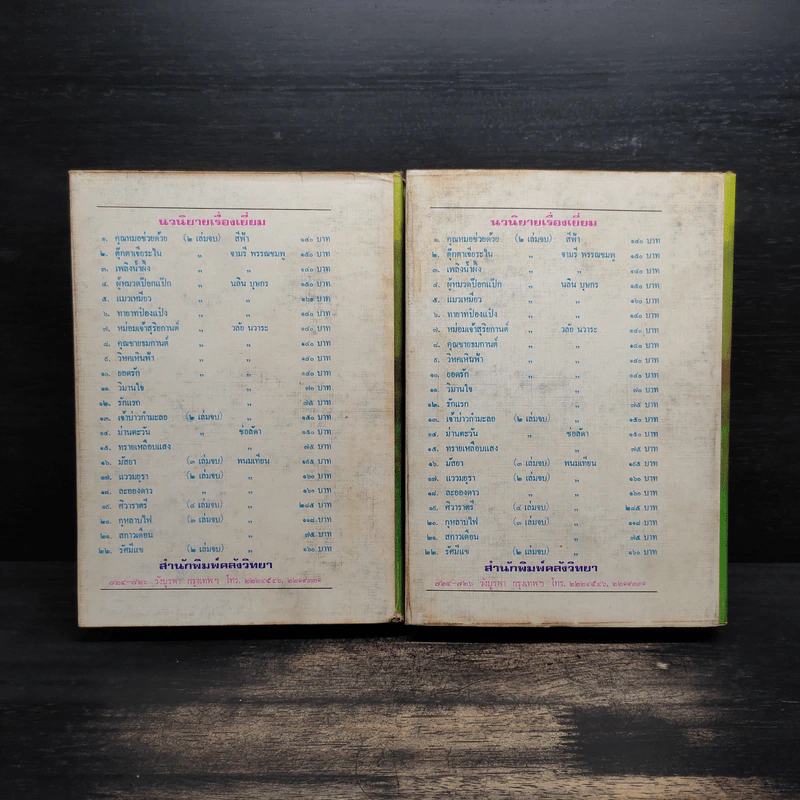 นวนิยายเรื่องเยี่ยม
๑. คุณหมอช่วยด้วย (๒ เล่มจบ) สีฟ้า ๑๔๐ บาท
๒. ตุ๊กตาเจียระไน " จามรี พรรณชมพู ๑๕๐ บาท
๓. เพลิงน้ำผึ้ง " " ๑๔๐ บาท
๔. ผู้หมวดป๊อกแป๊ก " นลิน บุษกร ๑๕๐ บาท
๕. แมวเหมียว " " ๑๖๐ บาท
๖. ทายาทป๋องแป๋ง " " ๑๔๐ บาท
๗. หม่อมเจ้าสุริยกานต์ " วลัย นวาระ ๑๔๐ บาท
๘. คุณชายชมกานต์ " " ๑๔๐ บาท
๙. วิหคเหินฟ้า " " ๑๔๐ บาท
๑๐. ยอดรัก " " ๑๔๐ บาท
๑๑. วิมานใจ " ๗๐ บาท
๑๒. รักแรก " ๗๕ บาท
๑๓. เจ้าบ่าวกำมะลอ (๒ เล่มจบ) " ๑๕๐ บาท
๑๔. ม่านตะวัน " ช่อลัดา ๑๕๐ บาท
๑๕. ทรายเหลือบแสง " ๗๕ บาท
๑๖. มัสยา (๓ เล่มจบ) พนมเทียน ๑๙๕ บาท
๑๗. แววมยุรา (๒ เล่มจบ) " ๑๖๐ บาท
๑๘. ละอองดาว " " ๑๖๐ บาท
๑๙. ศิวาราตรี (๔ เล่มจบ) " ๒๘๕ บาท
๒๐. กุหลาบไฟ (๓ เล่มจบ) " ๑๑๘ บาท
๒๑. สกาวเดือน " ๗๕ บาท
๒๒. รัศมีแข (๒ เล่มจบ) " ๑๖๐ บาท
สำนักพิมพ์คลังวิทยา
๗๒๔-๗๒๖ วังบูรพา กรุงเทพฯ โทร.
นวนิยายเรื่องเยี่ยม
๑. คุณหมอช่วยด้วย (๒ เล่มจบ) สีฟ้า ๑๔๐ บาท
๒. ตุ๊กตาเจียระไน " จามรี พรรณชมพู ๑๕๐ บาท
๓. เพลิงน้ำผึ้ง " " ๑๔๐ บาท
๔. ผู้หมวดป๊อกแป๊ก " นลิน บุษกร ๑๕๐ บาท
๕. แมวเหมียว " " ๑๖๐ บาท
๖. ทายาทป๋องแป๋ง " " ๑๔๐ บาท
๗. หม่อมเจ้าสุริยกานต์ " วลัย นวาระ ๑๔๐ บาท
๘. คุณชายชมกานต์ " " ๑๔๐ บาท
๙. วิหคเหินฟ้า " " ๑๔๐ บาท
๑๐. ยอดรัก " " ๑๔๐ บาท
๑๑. วิมานใจ " ๗๐ บาท
๑๒. รักแรก " ๗๕ บาท
๑๓. เจ้าบ่าวกำมะลอ (๒ เล่มจบ) " ๑๕๐ บาท
๑๔. ม่านตะวัน " ช่อลัดา ๑๕๐ บาท
๑๕. ทรายเหลือบแสง " ๗๕ บาท
๑๖. มัสยา (๓ เล่มจบ) พนมเทียน ๑๙๕ บาท
๑๗. แววมยุรา (๒ เล่มจบ) " ๑๖๐ บาท
๑๘. ละอองดาว " " ๑๖๐ บาท
๑๙. ศิวาราตรี (๔ เล่มจบ) " ๒๘๕ บาท
๒๐. กุหลาบไฟ (๓ เล่มจบ) " ๑๑๘ บาท
๒๑. สกาวเดือน " ๗๕ บาท
๒๒. รัศมีแข (๒ เล่มจบ) " ๑๖๐ บาท
สำนักพิมพ์คลังวิทยา
๗๒๔-๗๒๖ วังบูรพา กรุงเทพฯ โทร.